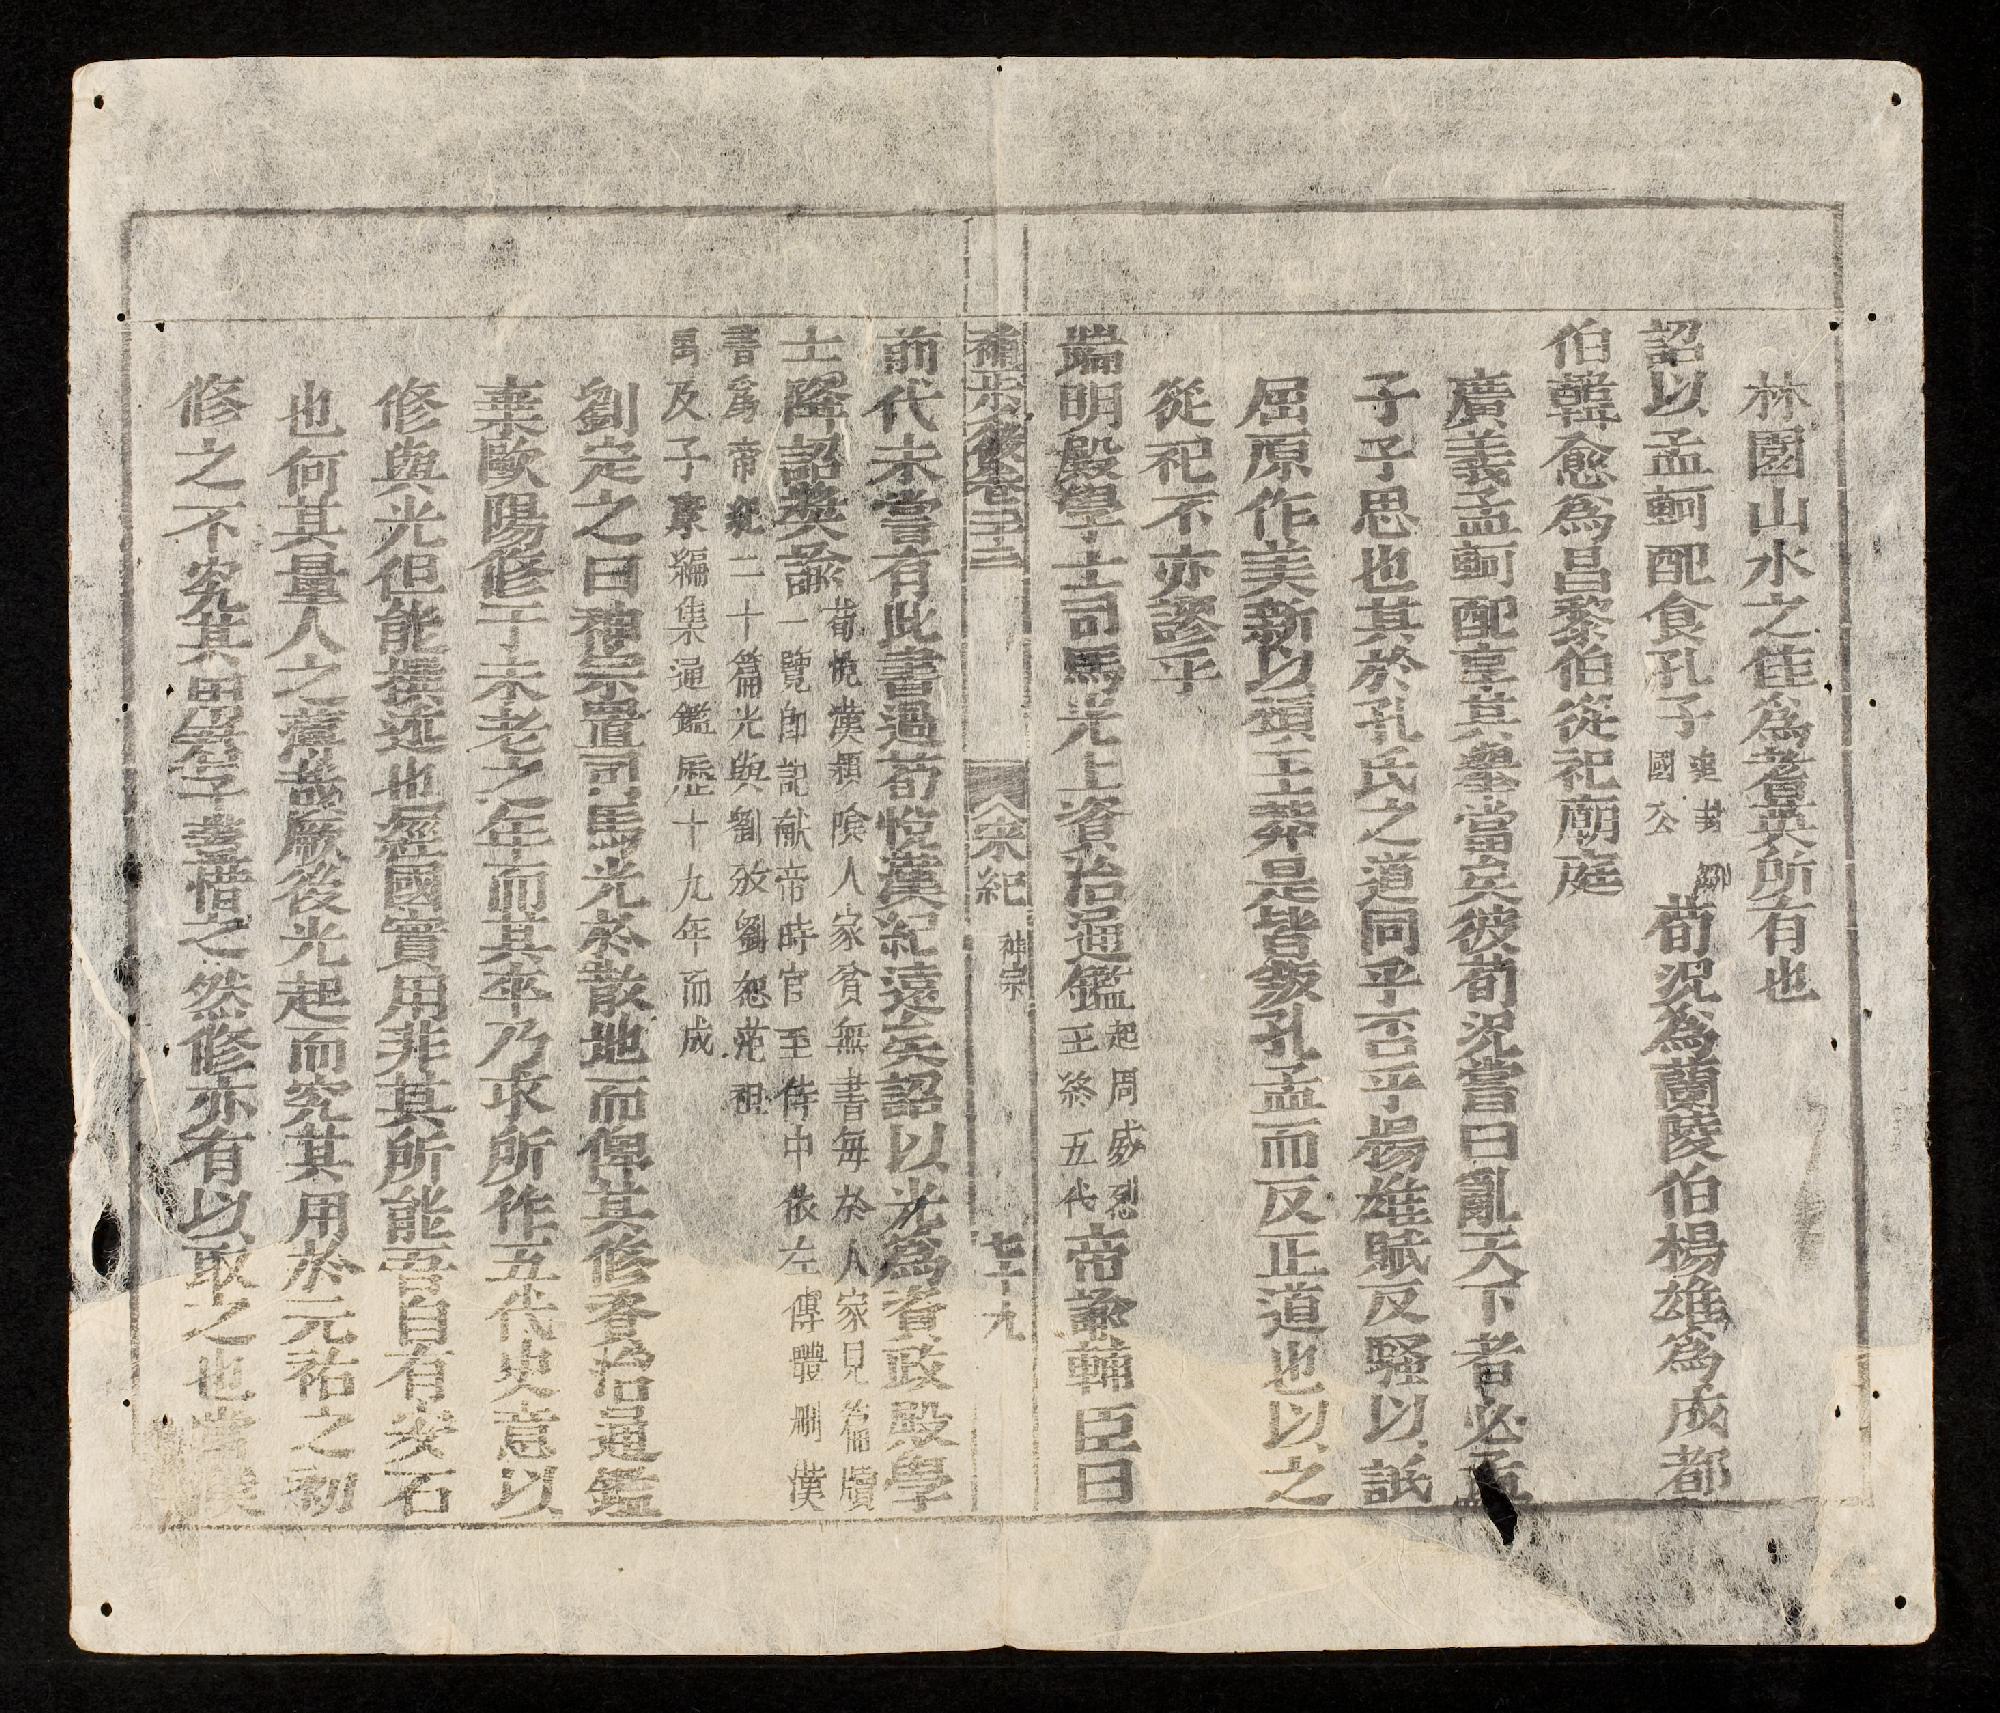 林園山水之佳為耆英所有也
詔以孟軻配食孔子 封鄒國公 荀況為蘭陵伯楊雄為成都
伯韓愈為昌黎伯從祀廟庭
廣義孟軻配享其舉當矣彼荀況嘗曰亂天下者必孟
子子思也其於孔氏之道同乎否乎楊雄賦反騷以詆
屈原作美新以頌王莽是皆叛孔孟而反正道也以之
從祀不亦謬乎
端明殿學士司馬光上資治通鑑 起周威烈王終五代 帝諭輔臣曰
補宋後卷 宋紀 神宗 七十九
前代未嘗有此書過荀悅漢紀遠矣詔以光為資政殿學
士降詔奬諭 荀悅漢潁陰人家貧無書每於人家見篇牘
一覽即記献帝時官至侍中依左傳體刪漢
書爲帝紀二十篇光與劉攽劉恕范祖
禹及子康編集通鑑歷十九年而成
劉定之曰神宗置司馬光於散地而俾其修資治通鑑
棄歐陽修于未老之年而其卒乃求所作五代史意以
修與光但能撰述也經國實用非其所能吾自有安石
也何其量人之薄哉厥後光起而究其用於元祐之初
修之不究其用君子孝惜之然修亦有以取之也當濮